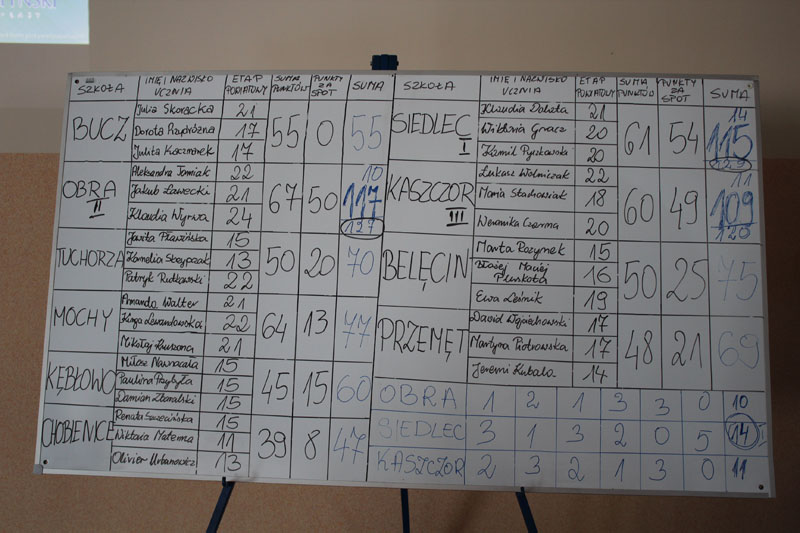 SZKOŁA IMIĘ I NAZWISKO UCZNIA ETAP POWIATOWY SUMA PUNKTÓW PUNKTY ZA SPOT SUMA
BUCZ Julia Skoracka 21 55 0 55
Dorota Przyдróżna 17
Julita Kaczmarek 17
OBRA II Aleksandra Tomiak 22 67 50 10 117 127
Jakub Ławecki 21
Klaudia Wyrwa 24
TUCHORZA 15 50 20 70
Kornelia Skrzypczak 13
Patryk Rutkowski 22
MOCHY Amanda Walter 21 64 13 77
Kinga Lewandowska 22
Mikołaj 21
KĘBŁOWO Miłosz Nawracała 15 45 15 60
Paulina Przybyła 15
Damian Zbaralski 15
CHOBIENICE Renata 15 39 8 47
Wiktoria Materna 11
Olivier Urbanowicz 13
SZKOŁA IMIĘ I NAZWISKO UCZNIA ETAP POWIATOWY SUMA PUNKTÓW PUNKTY ZA SPOT SUMA
SIEDLEC I Klaudia 21 61 54 14 115 129
Wiktoria Gracz 20
Kamil Pyszkowski 20
KASZCZOR III Łukasz Wolniczak 22 60 49 11 109 120
Maria Stachowiak 18
Weronika Czarma 20
BELĘCIN Marta Rozynek 15 50 25 75
Błażej Maciej Pluskota 16
Ewa Leśnik 19
PRZEMĘT Dawid Wojciechowski 17 48 21 69
Martyna Piotrowska 17
Jeremi Kubala 14
OBRA 1 2 1 3 3 0 10
SIEDLEC 3 1 3 2 0 5 14
KASZCZOR 2 3 2 1 3 0 11